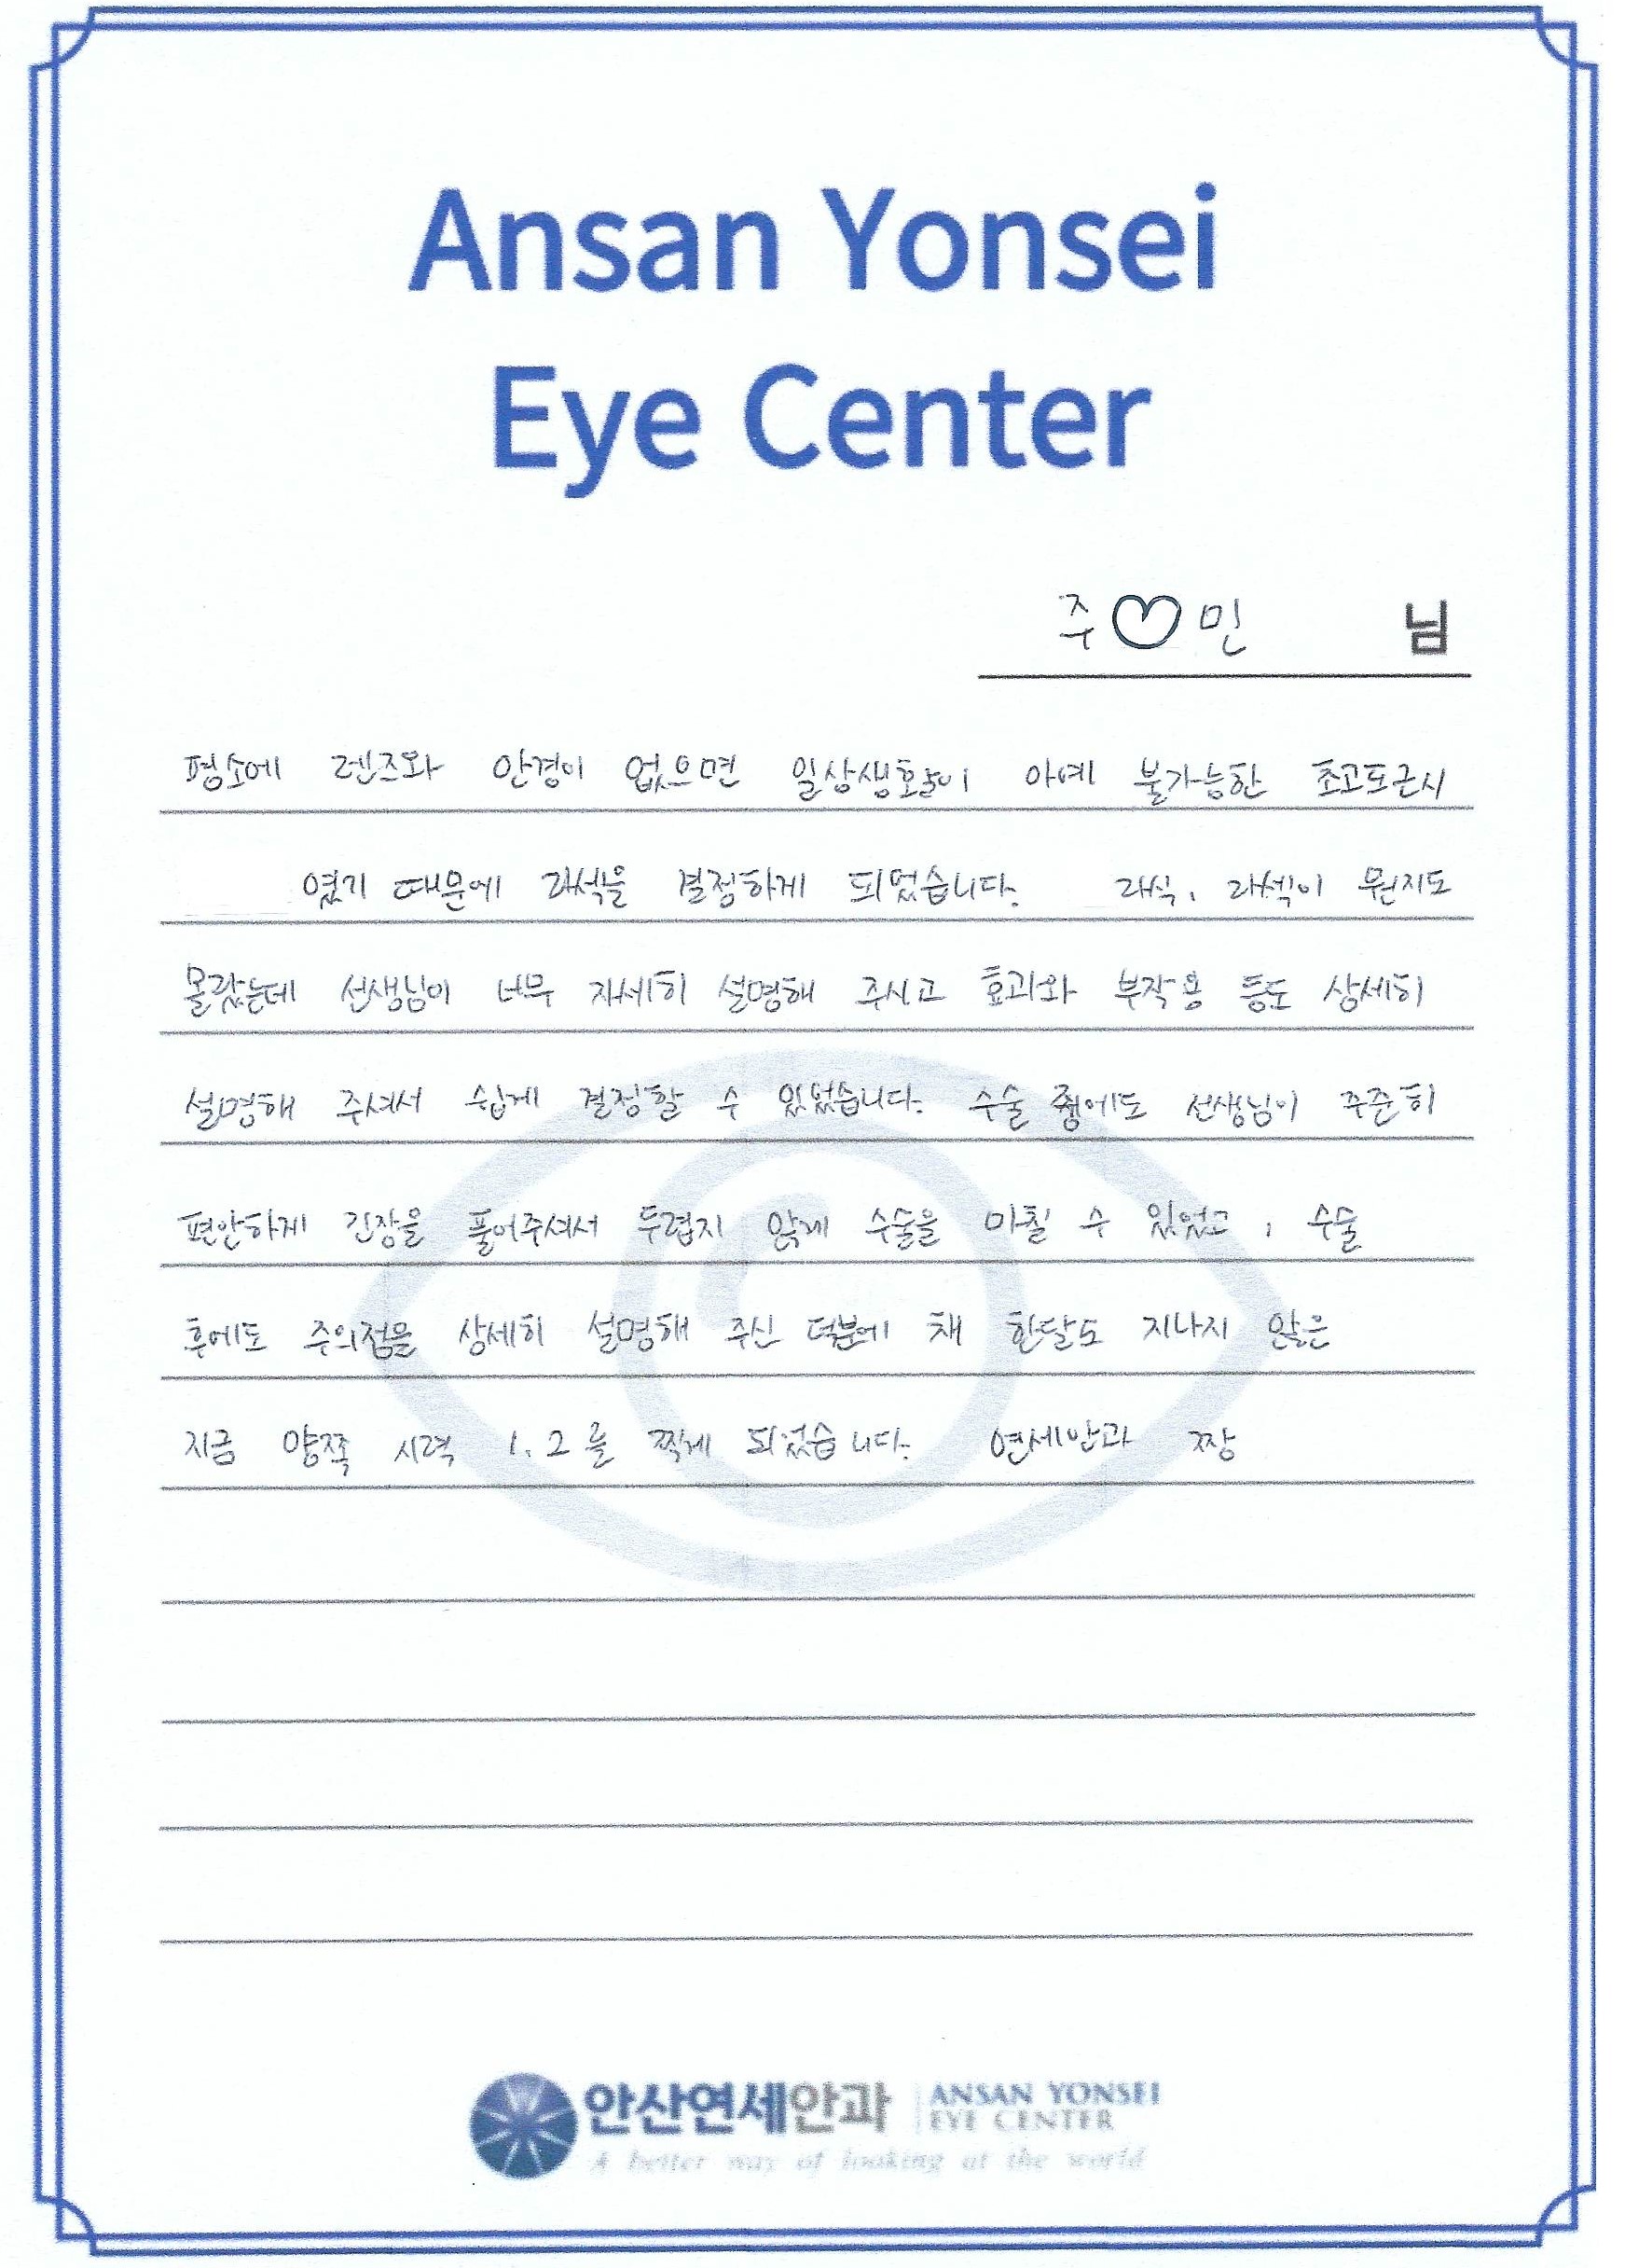 Ansan Yonsei
Eye Center
주♡민 님
평소에 렌즈와 안경이 없으면 일상생활이 아예 불가능한 초고도근시
였기 때문에 라섹을 결정하게 되었습니다. 라식, 라섹이 뭔지도
몰랐는데 선생님이 너무 자세히 설명해 주시고 효과와 부작용 등도 상세히
설명해 주셔서 쉽게 결정할 수 있었습니다. 수술 중에도 선생님이 꾸준히
편안하게 긴장을 풀어주셔서 두렵지 않게 수술을 마칠 수 있었고, 수술
후에도 주의점을 상세히 설명해 주신 덕분에 채 한달도 지나지 않은
지금 양쪽 시력 1.2를 찍게 되었습니다. 연세안과 짱
안산연세안과 ANSAN YONSEI
EYE CENTER
A better way of looking at the world